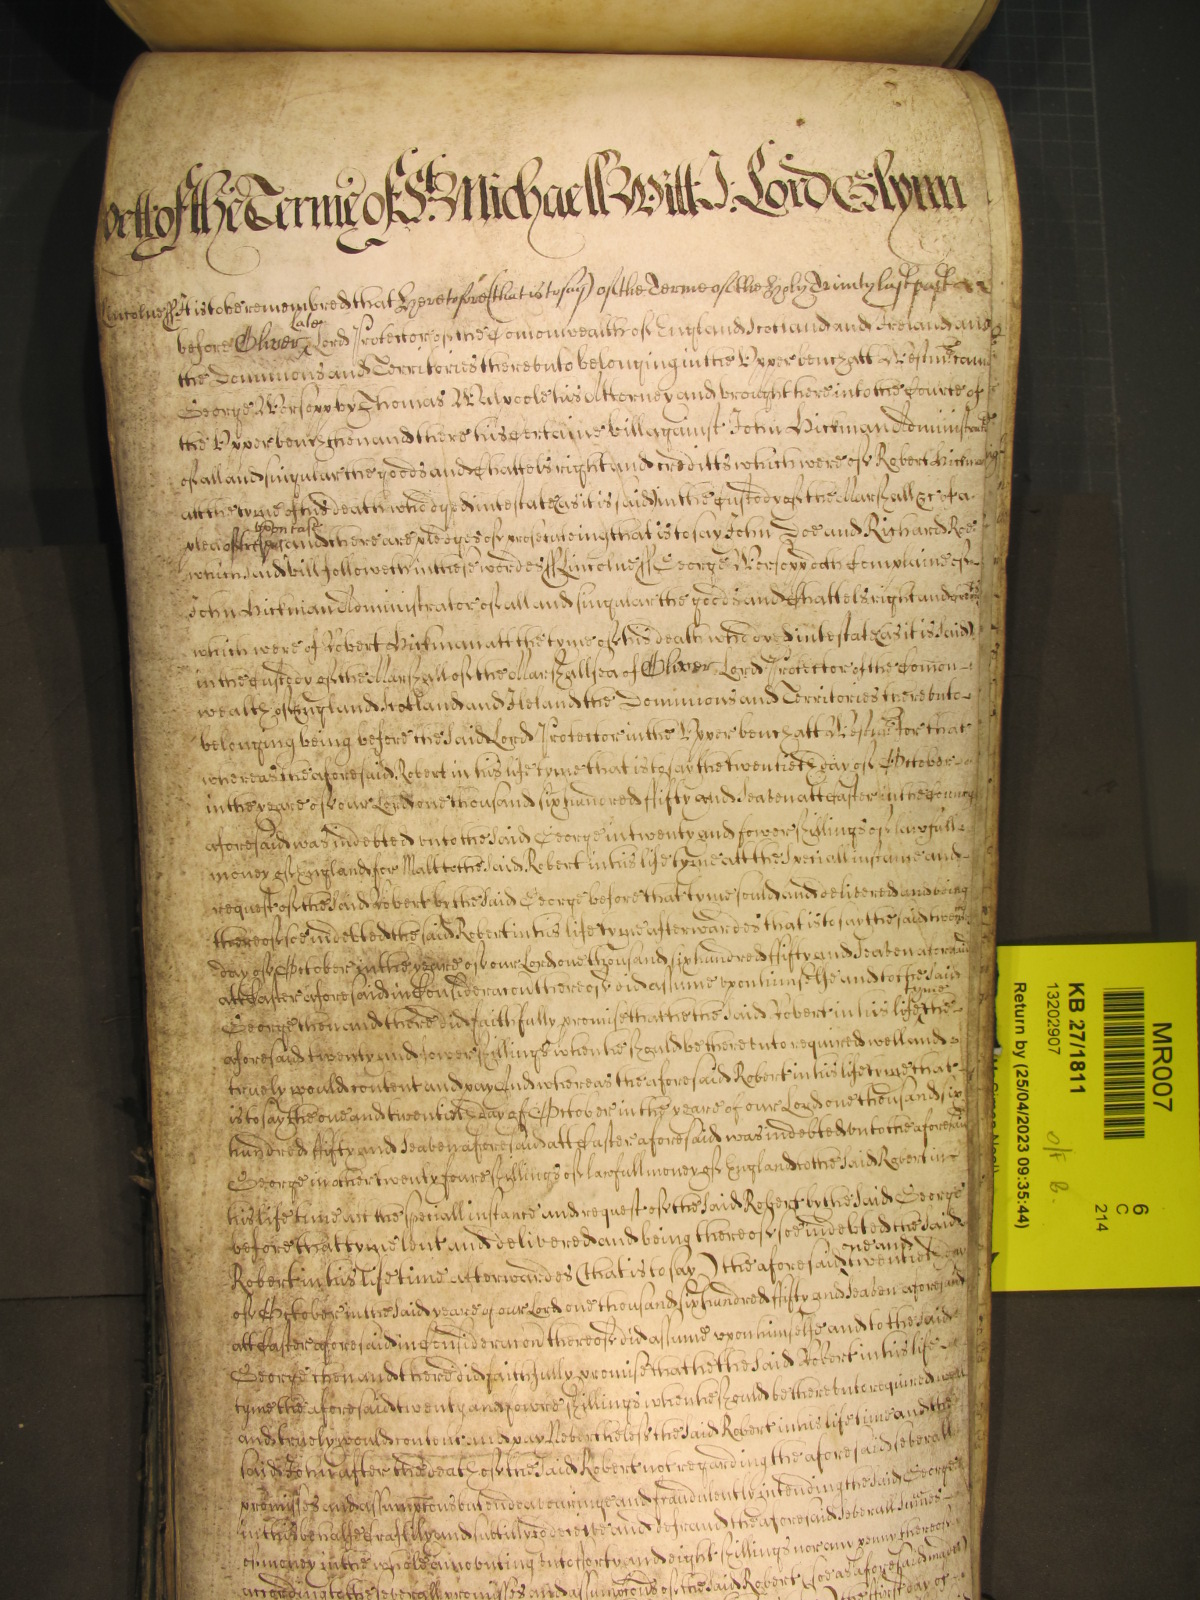 yett of the Terme of St. Michaell Witt. J. Lord Glynn
Lincolne ss It is to be remembred that Heretofore (that is to say) of the Terme of the Holy Trinity last past
before Oliver late Lord Protector of the Comonwealth of England Scotland and Ireland and
the Dominions and Territories thereunto belonging in the Upper bench att Westmr came
George Worsopp by Thomas Walpoole his Attorney and brought here into the Courte of
the Upper bench then and there his certaine bill against John Hickman Administrator
of all and singular the goods and Chattels right and creditts which were of Robert Hickman
att the tyme of his death who dyed intestate (as it is said) in the Custody of the Marshall &c of a
plea of trespas upon case and there are pledges of prosecuteing that is to say John Doe and Richard Roe
which said bill followeth in these wordes ss Lincolne ss George Worsopp doth Complaine of
John Hickman Administrator of all and singular the goods and Chattels right and credits
which were of Robert Hickman att the tyme of his death who dyed intestate (as it is said)
in the Custody of the Marshall of the Marshallsea of Oliver Lord Protector of the Comon-
wealth of England Scotland and Ireland the Dominions and Territories thereunto
belonging being before the said Lord Protector in the Upper bench att Westmr For that
whereas the aforesaid Robert in his life tyme that is to say the twentieth day of October
in the yeare of our Lord one thousand six hundred fifty and Seaven att Caster in the County
aforesaid was indebted unto the said George in twenty and fower shillings of lawfull
money of England for Malt to the said Robert in his life tyme att the Speciall instance and
request of the said Robert by the said George before that tyme sould and delivered and being
thereof soe indebted the said Robert in his life tyme afterwardes that is to say the said twentieth
day of October in the yeare of our Lord one thousand six hundred fifty and Seaven aforesaid
att Caster aforesaid in Consideracon thereof did assume upon himselfe and to the said
George then and there did faithfully promise that he the said Robert in his life tyme the
aforesaid twenty and fower shillings when he should be thereunto required well and
truely would content and pay And whereas the aforesaid Robert in his life tyme that
is to say the one and twentieth day of October in the yeare of our Lord one thousand six
hundred fifty and Seaven aforesaid att Caster aforesaid was indebted unto the aforesaid
George in other twenty foure shillings of lawfull money of England to the said Robert in
his life time att the speciall instance and request of the said Robert by the said George
before that tyme lent and delivered and being thereof soe indebted the said
Robert in his life time afterwardes (that is to say) the aforesaid one and twentieth day
of October in the said yeare of our Lord one thousand six hundred fifty and Seaven aforesaid
att Caster aforesaid in Consideracon thereof did assume upon himselfe and to the said
George then and there did faithfully promise that he the said Robert in his life
tyme the aforesaid twenty and fowre shillings when he should be thereunto required well
and truely would content and pay Nevertheless the said Robert in his life time and the
said John after the death of the said Robert not regarding the aforesaid severall
promisses and assumptons but endeavouringe and fraudulently intending the said George
in this behalfe Craftily and subtilly to deceive and defraud the aforesaid severall summes
of money in the whole amounting unto forty and eight shillings nor any penny thereof
according to the severall promisses and assumptons of the said Robert (soe as aforesaid made)
the first day of
MR007
6
C
214
KB 27/1811
13202907
O/F B.
Return by (25/04/2023 09:35:44)